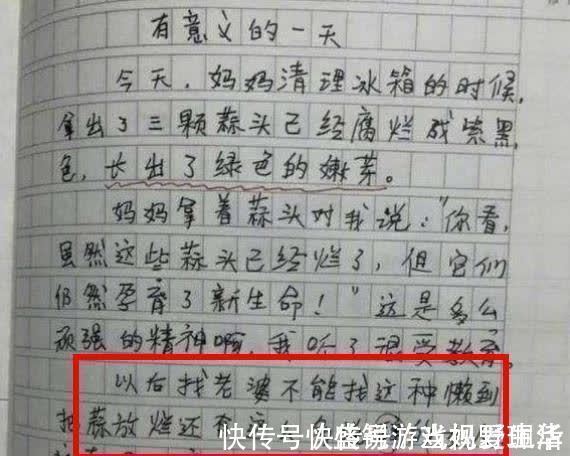 有意义的一天
今天,妈妈清理冰箱的时候,
拿出了三颗蒜头已经腐烂成紫黑
色,长出了绿色的嫩芽。
妈妈拿着蒜头对我说:“你看,
虽然这些蒜头已经烂了,但它们
仍然孕育了新生命!”这是多么
顽强的精神啊,我听了很受教育。
以后找老婆不能找这种懒到
把蒜放烂还
快传号